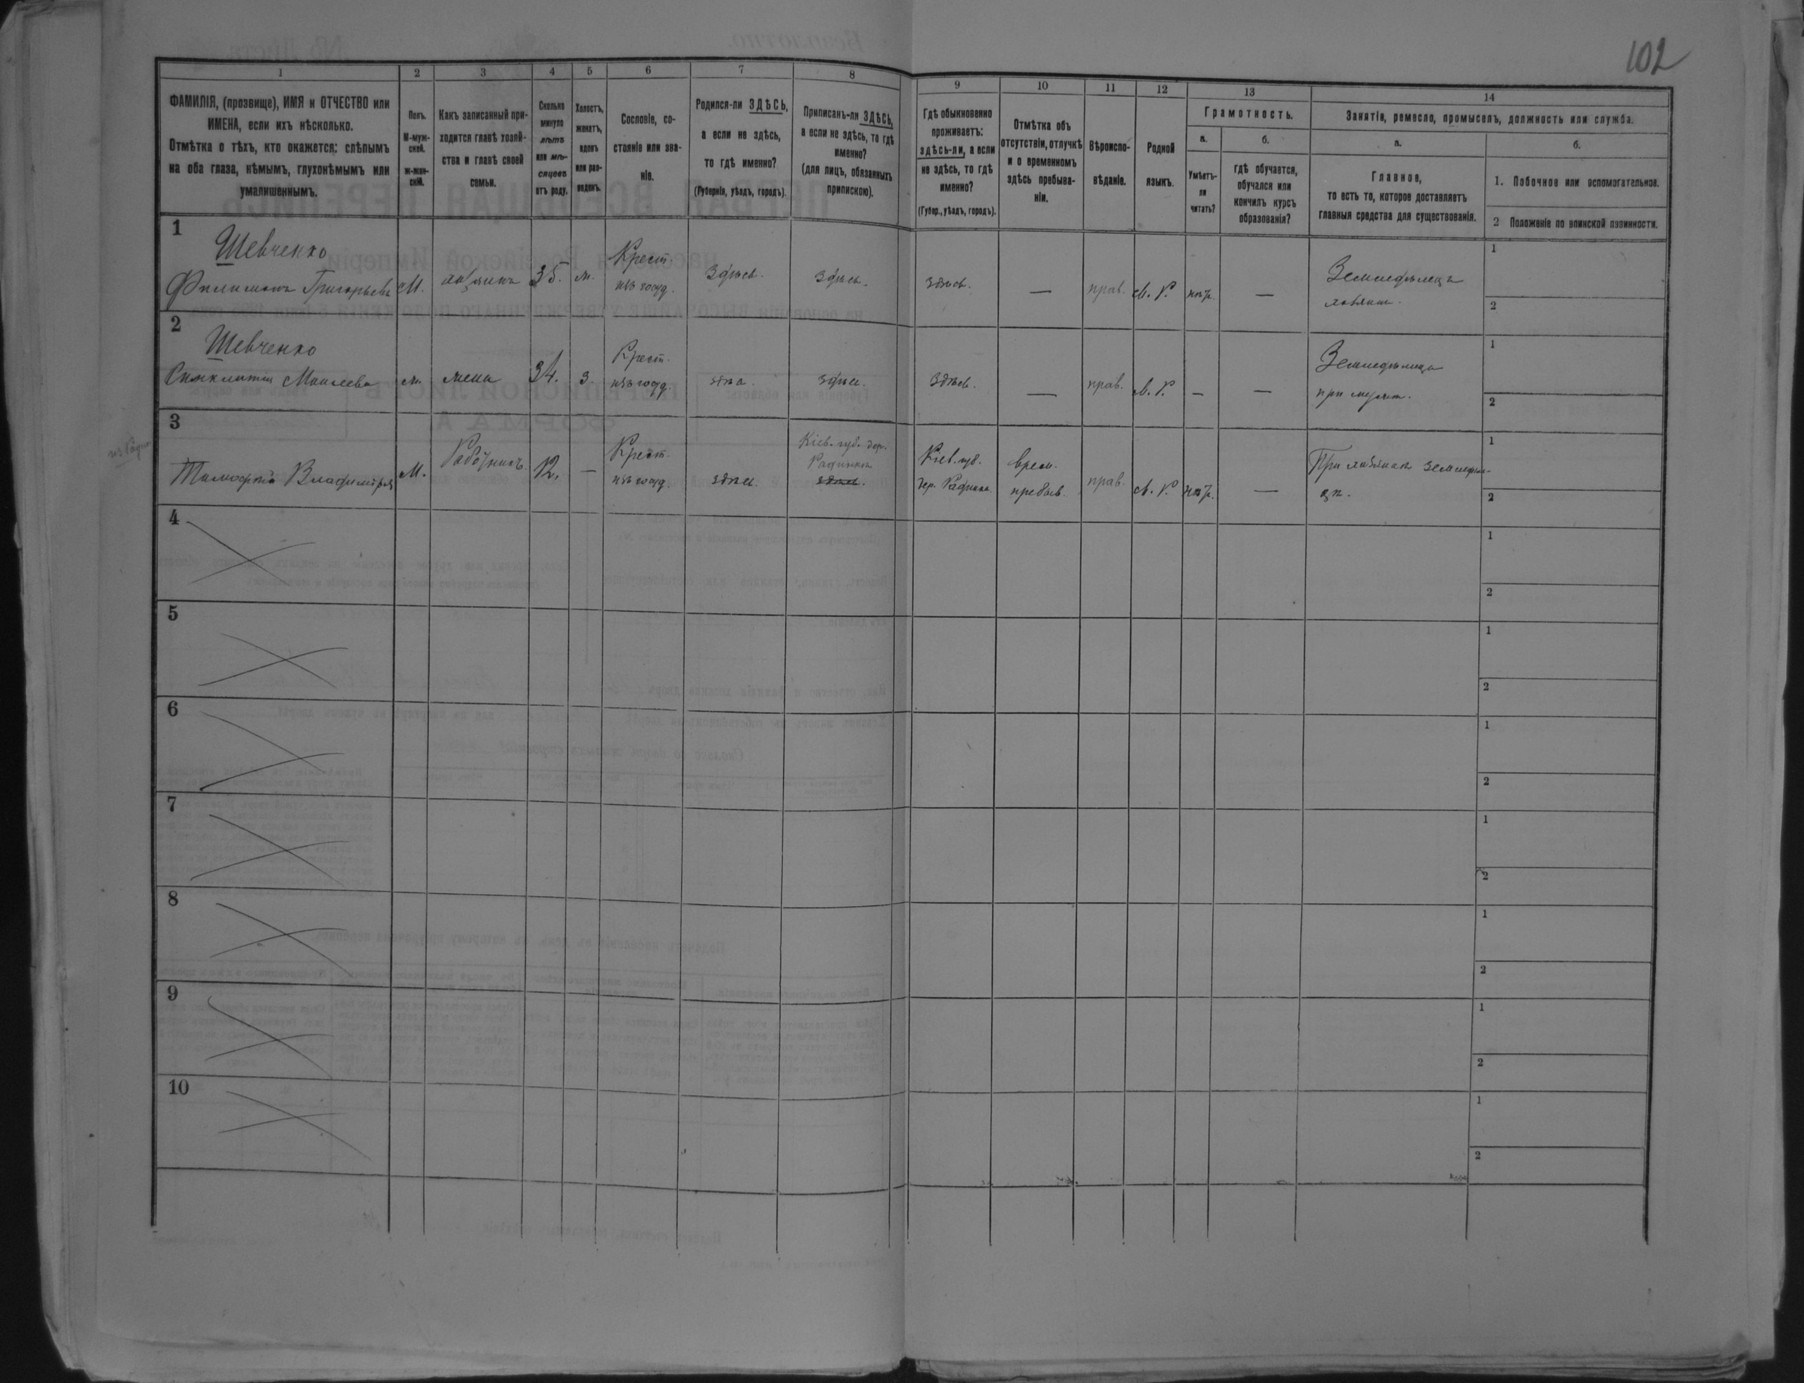 102
1
2
3
4
5
6
7
8
9
10
11
12
13
14
ФАМИЛІЯ, (прозвище), ИМЯ и ОТЧЕСТВО или
ИМЕНА, если ихъ нѣсколько.
Отмѣтка о тѣхъ, кто окажется: слѣпымъ
на оба глаза, нѣмымъ, глухонѣмымъ или
умалишеннымъ.
Полъ.
М-муж-
ской.
ж-жен-
скій.
Какъ записанный при-
ходится главѣ хозяй-
ства и главѣ своей
семьи.
Сколько
минуло
лѣтъ
или мѣ-
сяцевъ
отъ роду.
Холостъ,
женатъ,
вдовъ
или раз-
веденъ.
Сословіе, со-
стояніе или зва-
ніе.
Родился-ли ЗДѢСЬ,
а если не здѣсь,
то гдѣ именно?
(Губернія, уѣздъ, городъ).
Приписанъ-ли ЗДѢСЬ,
а если не здѣсь, то гдѣ
именно?
(для лицъ, обязанныхъ
припискою).
Гдѣ обыкновенно
проживаетъ:
здѣсь-ли, а если
не здѣсь, то гдѣ
именно?
(Губер., уѣздъ, городъ).
Отмѣтка объ
отсутствіи, отлучкѣ
и о временномъ
здѣсь пребыва-
ніи.
Вѣроиспо-
вѣданіе.
Родной
языкъ.
Грамотность.
а.
Умѣетъ-
ли
читать?
б.
гдѣ обучается,
обучался или
кончилъ курсъ
образованія?
Занятіе, ремесло, промыселъ, должность или служба.
а.
Главное,
то есть то, которое доставляетъ
главныя средства для существованія.
б.
1. Побочное или вспомогательное.
2 Положеніе по воинской повинности.
1
Шевченко
Филимонъ Григорьевъ
М.
хозяинъ
35.
ж.
Крест.
изъ госуд.
здѣсь.
здѣсь.
здѣсь.
—
прав.
М. Р.
нѣтъ
—
Земледѣлецъ
хозяинъ.
1
2
2
Шевченко
Моисеева
жена
34.
з
Крест.
изъ госуд.
здѣсь.
здѣсь.
здѣсь.
—
прав.
М. Р.
—
—
Земледѣлецъ
при мужѣ.
1
2
3
Тимофѣй Владиміровъ
М.
Работникъ
12.
—
Крест.
изъ госуд.
здѣсь.
Кіев. губ. дер.
здѣсь.
Кіев. губ.
дер.
врем.
пребыв.
прав.
М. Р.
нѣтъ
—
При хозяинѣ земледѣл-
цѣ.
1
2
4
1
2
5
1
2
6
1
2
7
1
2
8
1
2
9
1
2
10
1
2